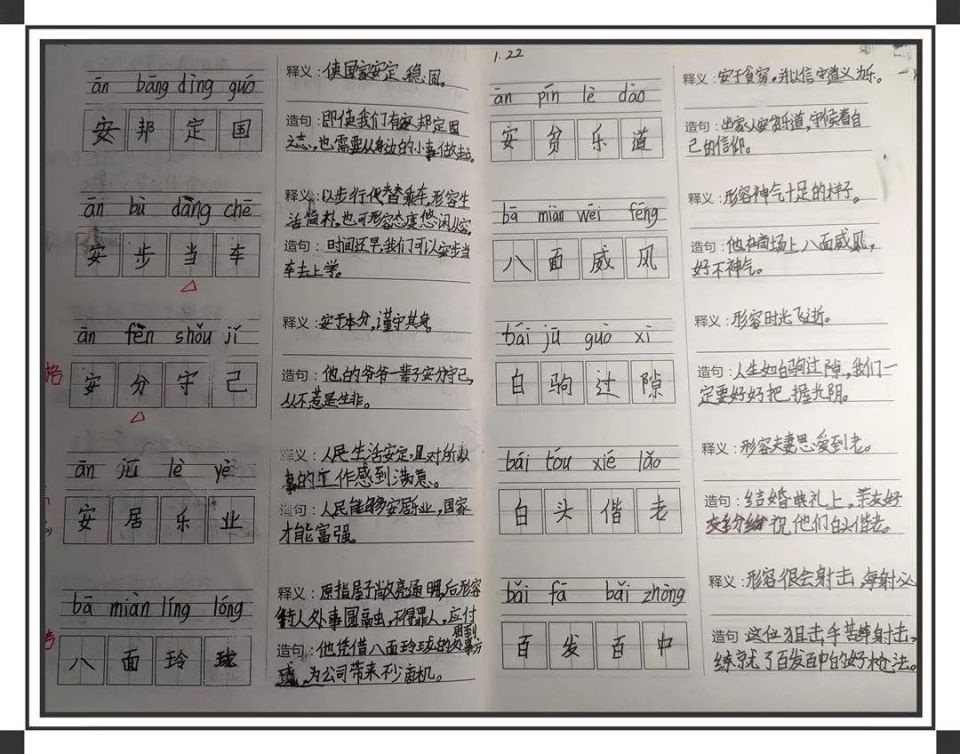 ān bāng dìng guó
安邦定国
释义：使国家安定、稳固。
造句：即使我们有安邦定国
之志，也需要从身边的小事做起。
ān bù dàng chē
安步当车
释义：以步行代替乘车，形容生
活简朴，也可形容态度悠闲从容。
造句：时间还早，我们可以安步当
车去上学。
ān fèn shǒu jǐ
安分守己
释义：安于本分，谨守其身。
造句：他的爷爷一辈子安分守己，
从不惹是生非。
ān jū lè yè
安居乐业
释义：人民生活安定，且对所从
事的工作感到满意。
造句：人民能够安居乐业，国家
才能富强。
bā miàn líng lóng
八面玲珑
释义：原指屋子敞亮通明，后形容
待人处事圆融，不得罪人，应付
周到
造句：他凭借八面玲珑的处事方
为公司带来不少商机。
1.22
ān pín lè dào
安贫乐道
释义：安于贫穷，并以信守道义为乐。
造句：出家人安贫乐道，守候着自
己的信仰。
bā miàn wēi fēng
八面威风
释义：形容神气十足的样子。
造句：他在商场上八面威风，
好不神气。
bái jū guò xì
白驹过隙
释义：形容时光飞逝。
造句：人生如白驹过隙，我们一
定要好好把握光阴。
bái tóu xié lǎo
白头偕老
释义：形容夫妻恩爱到老。
造句：结婚典礼上，亲友好
友纷纷祝他们白头偕老。
bǎi fā bǎi zhòng
百发百中
释义：形容很会射击，每射必
造句：这位狙击手苦练射击，
练就了百发百中的好枪法。